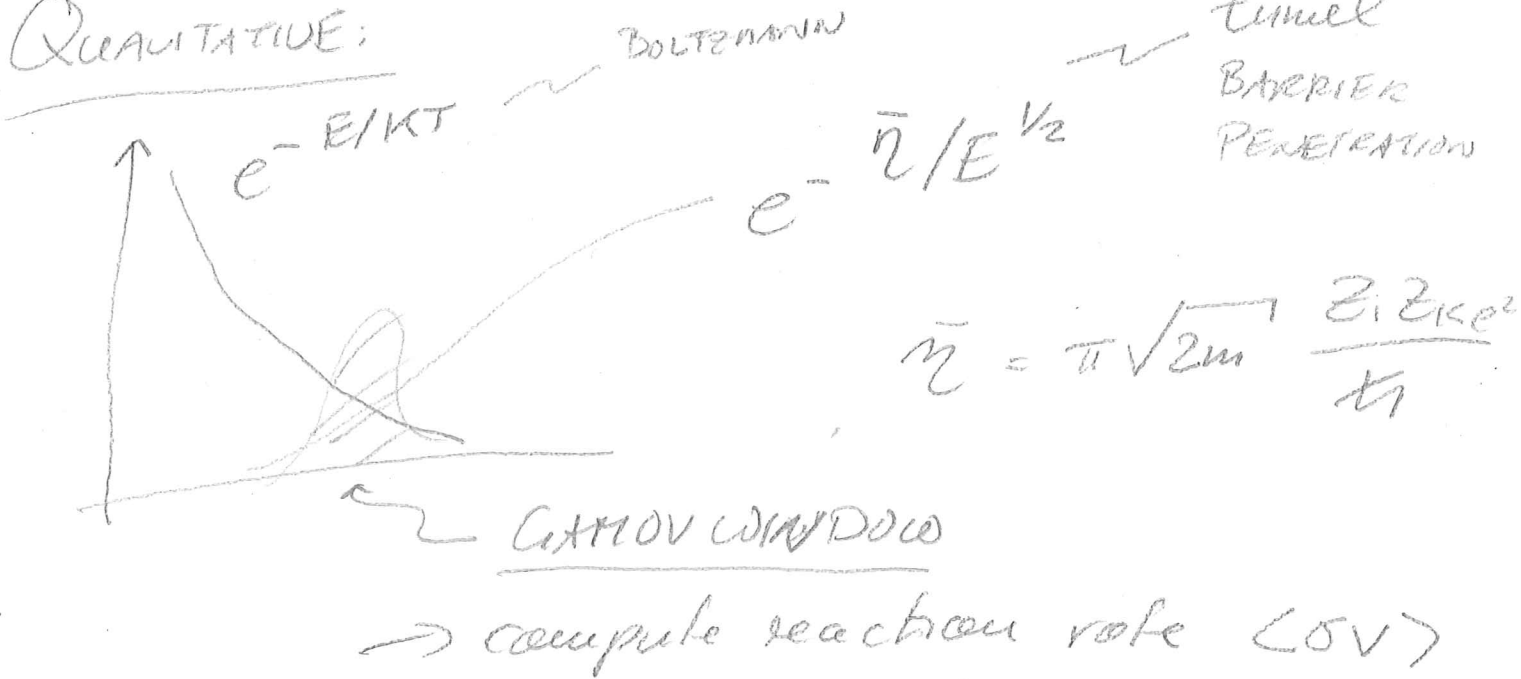 QUALITATIVE:
BOLTZMANN
tunnel
BARRIER
PENETRATION
e^{-E/KT}
e^{-\bar{η}/E^{1/2}}
\bar{η} = π√2m Z_i Z_k e^2 / ħ
GAMOV WINDOW
→ compute reaction rate <σv>